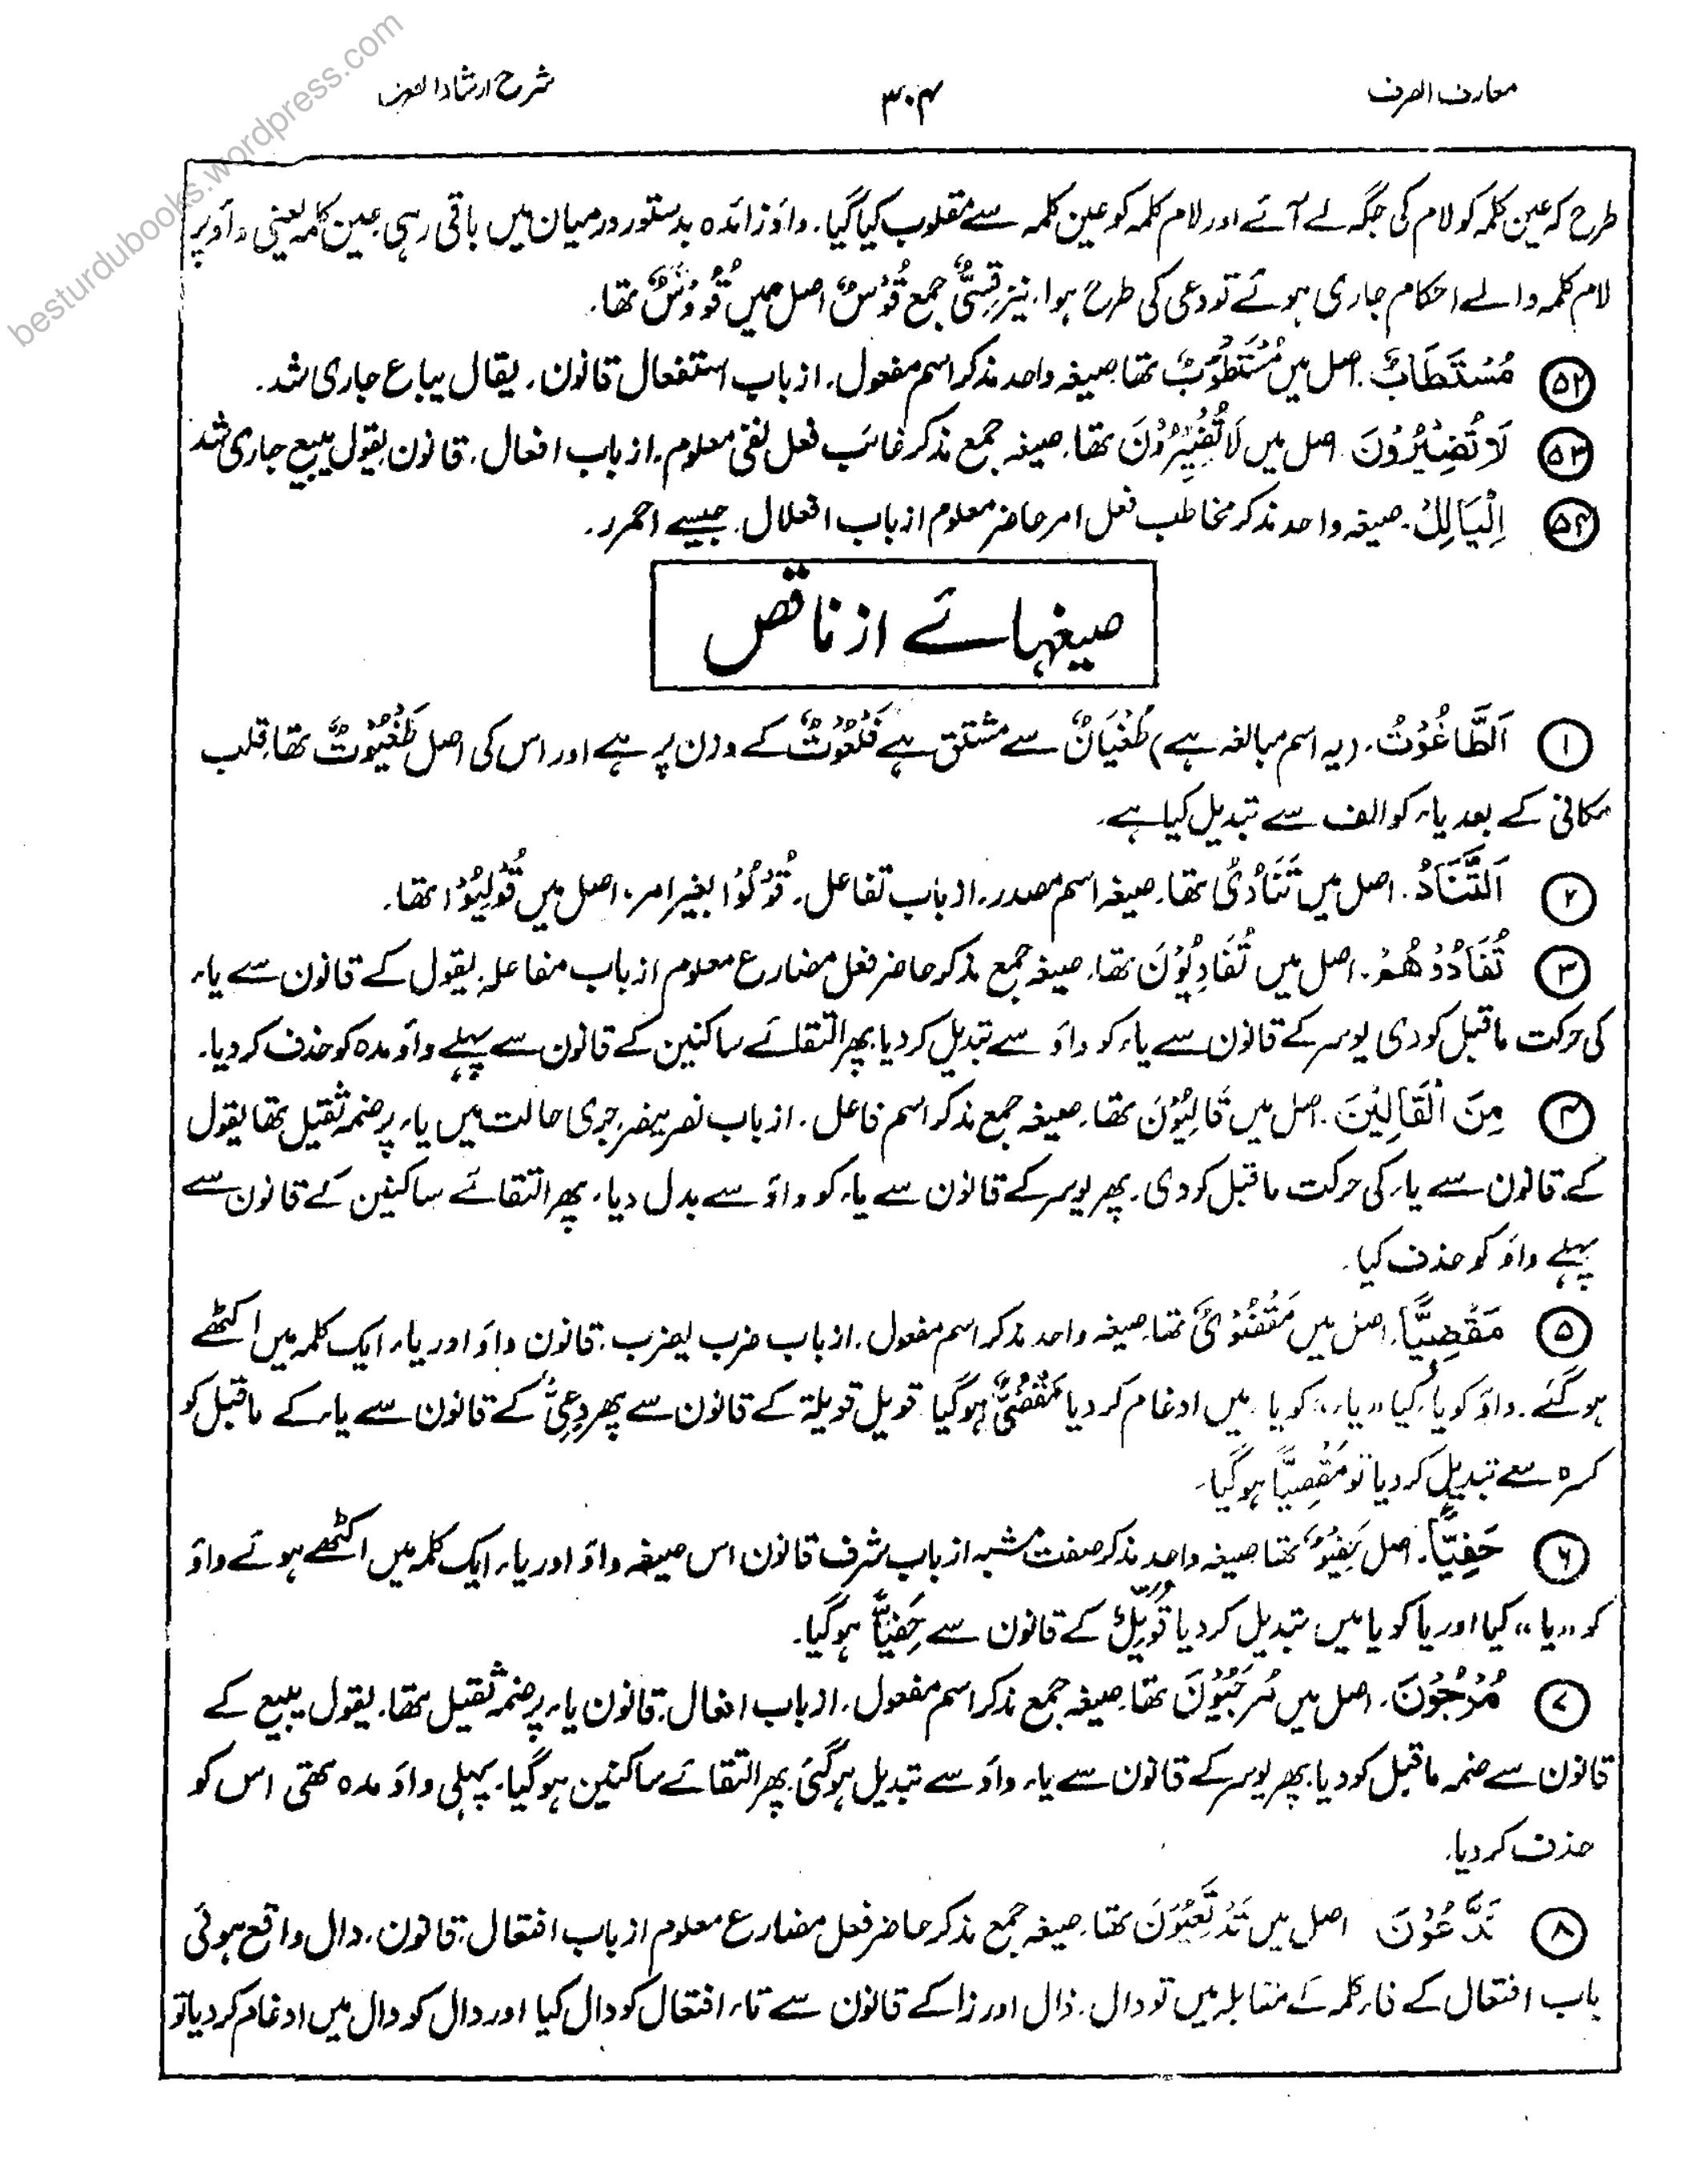 معارف الصرف
۳۰۴
شرح ارشاد الصرف
besturdubooks.wordpress.com
طرح کہ عین کلمہ کو لام کی جگہ لے آئے اور لام کلمہ کو عین کلمہ سے مقلوب کیا گیا۔ واؤ زائدہ بدستور درمیان میں باقی رہی عین کلمہ یعنی واؤ پر
لام کلمہ والے احکام جاری ہوئے تو دعی کی طرح ہوا۔ نیز قِسِیٌّ جمع قَوْسٌ اصل میں قُوُوْسٌ تھا۔
۵۲ مُسْتَطَابٌ۔ اصل میں مُسْتَطْوَبٌ تھا صیغہ واحد مذکر اسم مفعول۔ از باب استفعال قانون۔ یقال یباع جاری شد۔
۵۳ لَا تُضِیْرُوْنَ اصل میں لَا تُضْیِرُوْنَ تھا۔ صیغہ جمع مذکر غائب فعل نفی معلوم۔ از باب افعال۔ قانون یقول یبیع جاری شد
۵۴ اِلْیَالِلْ۔ صیغہ واحد مذکر مخاطب فعل امر حاضر معلوم از باب افعلال۔ جیسے احمرر۔
صیغہائے از ناقص
۱ اَلطَّاغُوْتُ۔ (یہ اسم مبالغہ ہے) طُغْیَانٌ سے مشتق ہے فَلَعُوْتٌ کے وزن پر ہے اور اس کی اصل طَغْیُوْتٌ تھا قلب
مکانی کے بعد یاء کو الف سے تبدیل کیا ہے۔
۲ اَلتَّنَادُ۔ اصل میں تَنَادُیٌ تھا۔ صیغہ اسم مصدر۔ از باب تفاعل۔ قُوْلُوْا بغیر امر۔ اصل میں قُوْلِیُوْا تھا۔
۳ تُفَادُوْھُمْ۔ اصل میں تُفَادِیُوْنَ تھا۔ صیغہ جمع مذکر حاضر فعل مضارع معلوم از باب مفاعلہ یقول کے قانون سے یاء
کی حرکت ماقبل کو دی یوسر کے قانون سے یاء کو واؤ سے تبدیل کر دیا پھر التقائے ساکنین کے قانون سے پہلے واؤ مدہ کو حذف کر دیا۔
۴ مِنَ الْقَالِیْنَ۔ اصل میں قَالِیُوْنَ تھا۔ صیغہ جمع مذکر اسم فاعل۔ از باب نصر ینصر جری حالت میں یاء پر ضمہ ثقیل تھا یقول
کے قانون سے یاء کی حرکت ماقبل کو دی۔ پھر یوسر کے قانون سے یاء کو واؤ سے بدل دیا۔ پھر التقائے ساکنین کے قانون سے
پہلے واؤ کو حذف کیا۔
۵ مَقْضِیًّا۔ اصل میں مَقْضُوْیٌ تھا۔ صیغہ واحد مذکر اسم مفعول۔ از باب ضرب یضرب۔ قانون واؤ اور یاء ایک کلمہ میں اکٹھے
ہو گئے۔ واؤ کو یاء کیا "یاء" کو یاء میں ادغام کر دیا مَقْضُیٌّ ہو گیا قویل قویلۃ کے قانون سے پھر دِعِیٌّ کے قانون سے یاء کے ماقبل کو
کسرہ سے تبدیل کر دیا تو مَقْضِیًّا ہو گیا۔
۶ حَفِیًّا۔ اصل حَفِیْوٌ تھا صیغہ واحد مذکر صفت مشبہ از باب شرف قانون اس صیغہ واؤ اور یاء ایک کلمہ میں اکٹھے ہوئے واؤ
کو "یا" کیا اور یا کو یا میں تبدیل کر دیا قُوَیِّلٌ کے قانون سے حَفِیًّا ہو گیا۔
۷ مُرْجَوْنَ۔ اصل میں مُرْجَیُوْنَ تھا۔ صیغہ جمع مذکر اسم مفعول۔ از باب افعال۔ قانون یاء پر ضمہ ثقیل تھا۔ یقول یبیع کے
قانون سے ضمہ ماقبل کو دیا پھر یوسر کے قانون سے یاء واؤ سے تبدیل ہو گئی۔ پھر التقائے ساکنین ہو گیا۔ پہلی واؤ مدہ تھی اس کو
حذف کر دیا۔
۸ تَدَّعُوْنَ اصل میں تَدْتَعِیُوْنَ تھا۔ صیغہ جمع مذکر حاضر فعل مضارع معلوم از باب افتعال۔ قانون۔ دال واقع ہوئی
باب افتعال کے فاء کلمہ کے مقابلہ میں تو دال۔ ذال اور زا کے قانون سے تاء افتعال کو دال کیا اور دال کو دال میں ادغام کر دیا تو